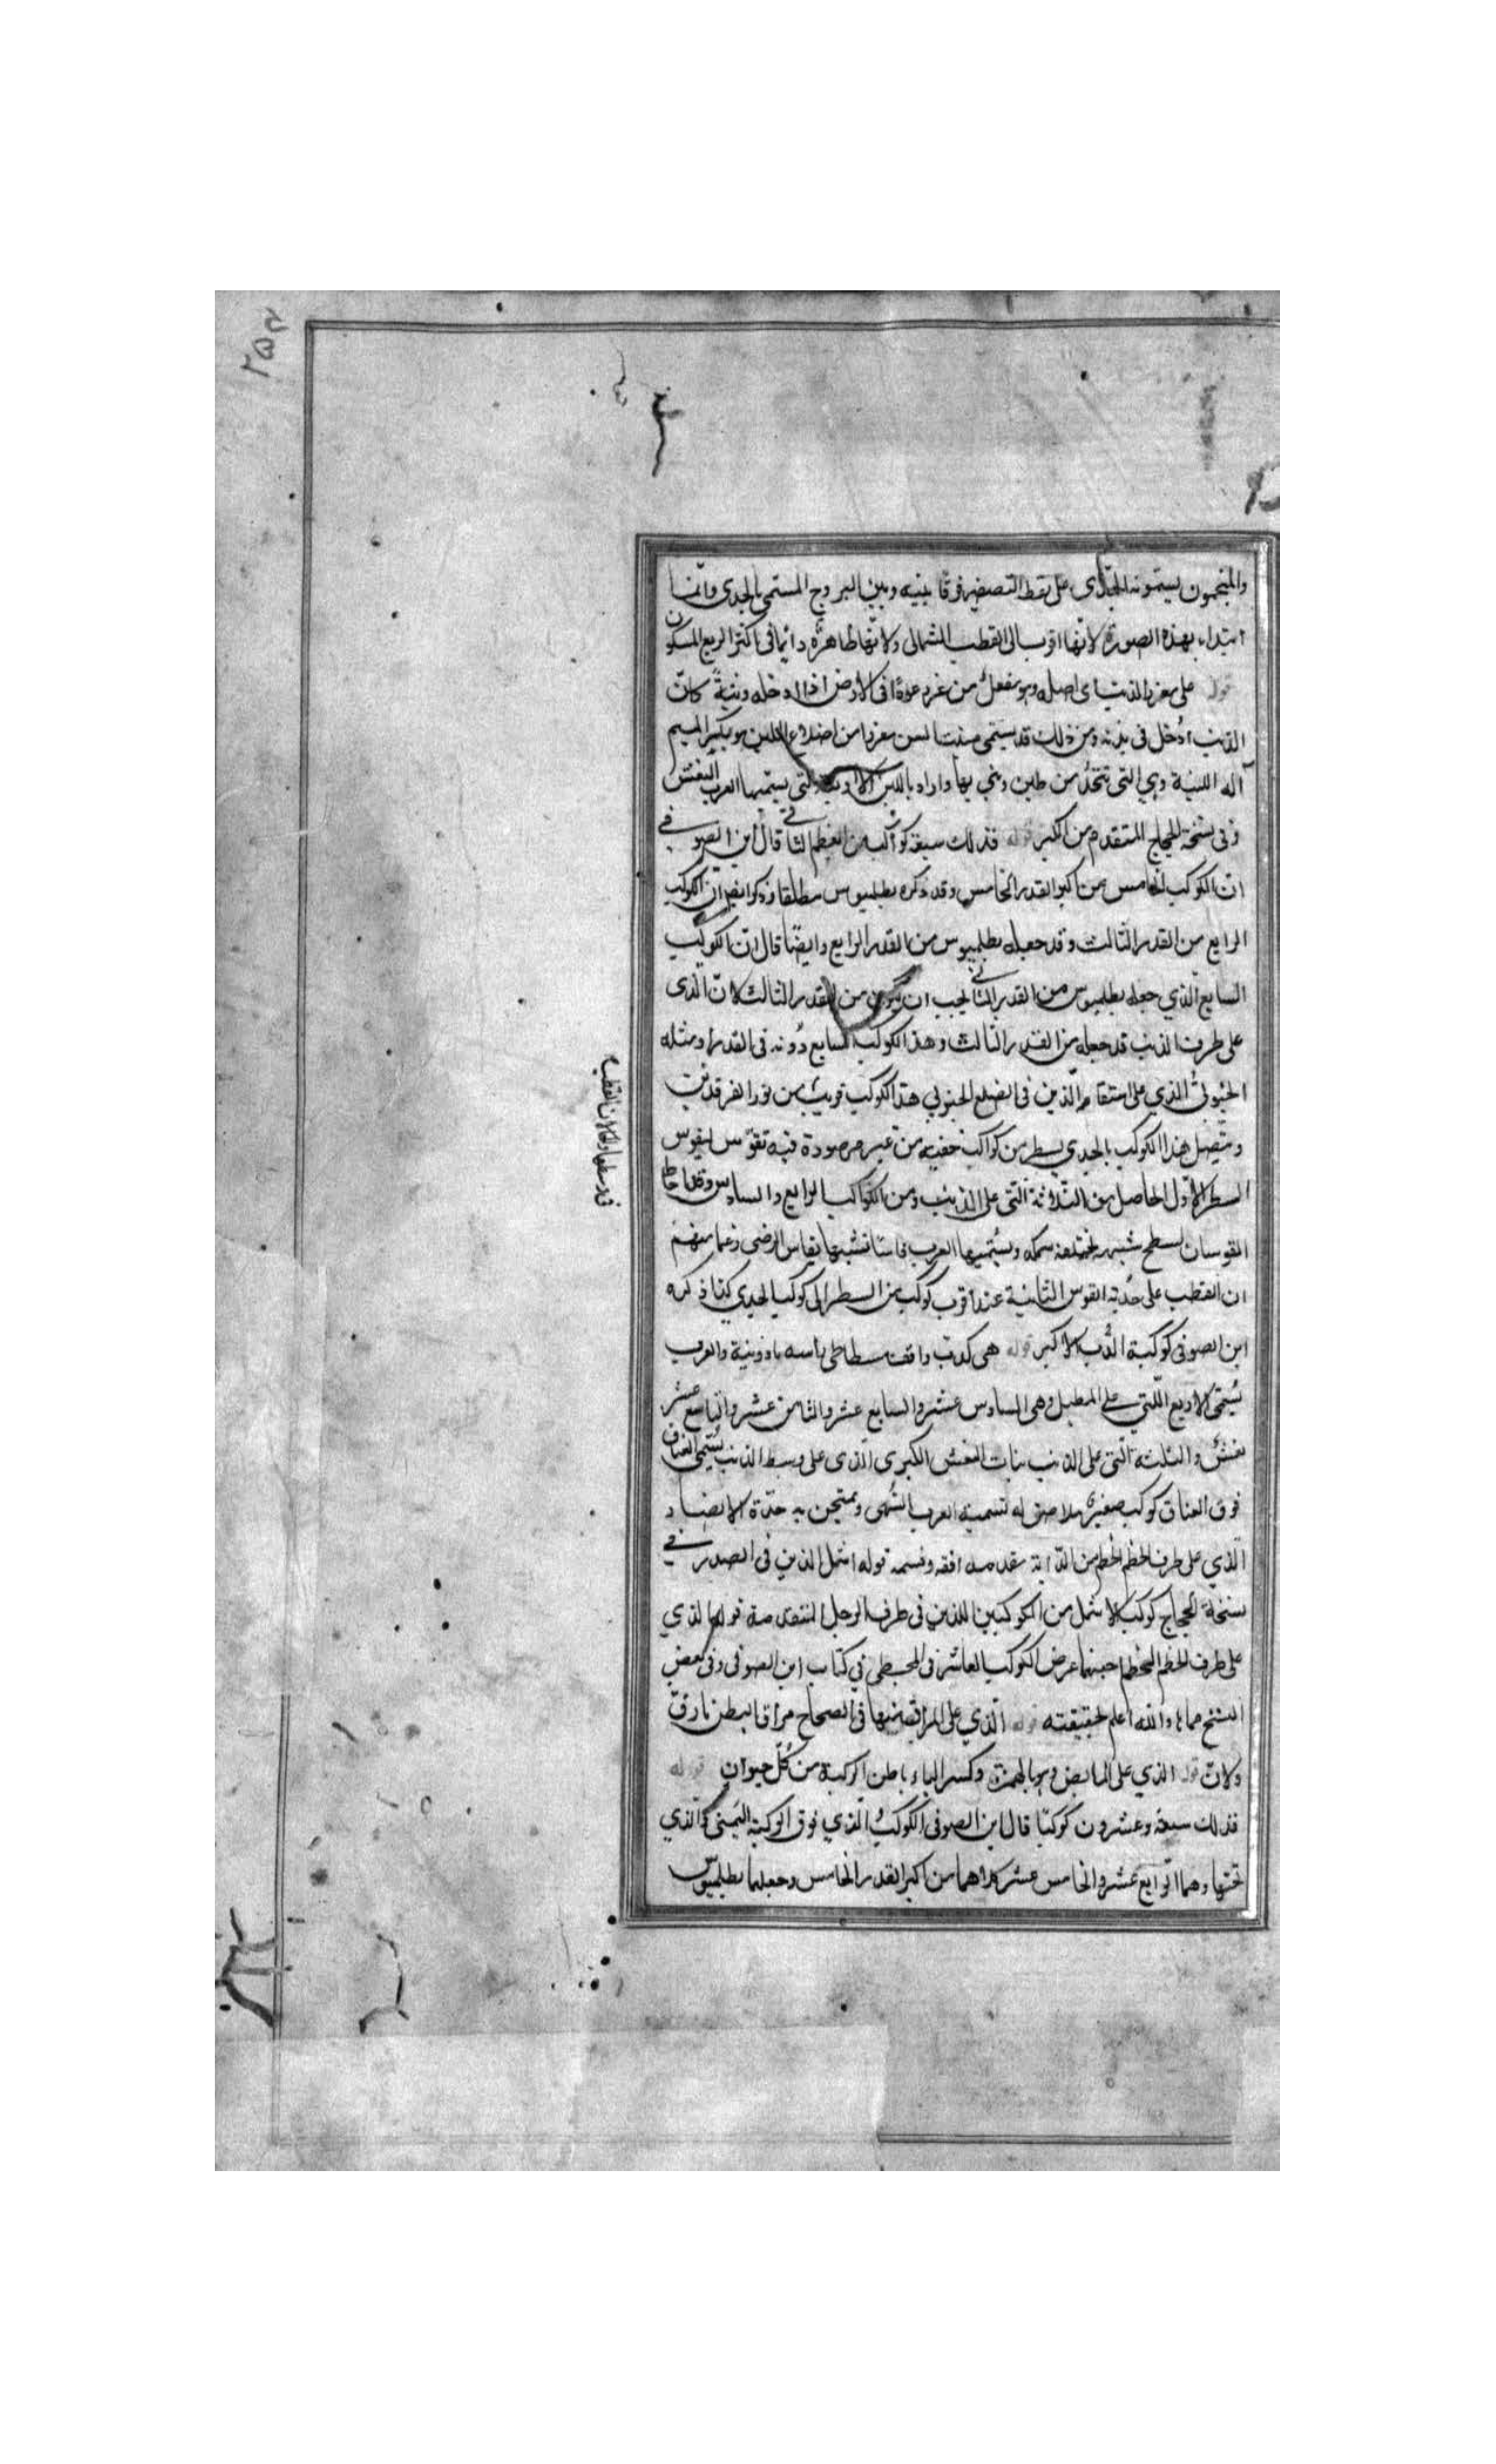 والمنجمون يسمونه الجدى على لفظ التصغير فرقا بينه وبين البروج المسمى بالجدى وانما
ابتداء بهذه الصورة لانها اقرب الى القطب الشمالى ولانها ظاهرة دائما فى اكثر الربع المسكون
قوله على مغرز الذنب اى اصله وهو مفعل من غرز عودًا فى الارض اذا ادخله وثبته كان
الذنب ادخل فى بدنه ومن ذلك قد يسمى منبت السن مغرزا من اضلاع اللبن هو بكسر الميم
آلة اللبنة وهي التى تتخذ من طين ويبنى بها واراد باللبن الاربعة التى يسميها العرب النعش
وفى نسخة الحجاج المتقدم من الكبر قوله فذلك سبعة كواكب من العظم الثانى قال ابن الصوفى
ان الكوكب الخامس من اكبر القدر الخامس وقد ذكره بطلميوس مطلقا وذكر ايضا ان الكوكب
الرابع من القدر الثالث وقد جعله بطلميوس من القدر الرابع وايضًا قال ان الكوكب
السابع الذي جعله بطلميوس من القدر الثانى يجب ان يكون من القدر الثالث لان الذى
على طرف الذنب قد جعله من القدر الثالث وهذا الكوكب السابع دونه فى القدر او مثله
الجنوبىّ الذي على استقامة الذين فى الضلع الجنوبي هذا الكوكب قريب من نور الفرقدين
ويتصل هذا الكوكب بالجدي بسطر من كواكب خفية من غير مرصودة فيه تقوس كقوس
السطر الاول الحاصل من الثلاثة التى على الذنب ومن الكواكب الرابع والسادس وقد احاط
القوسان بسطح شبيه بخلقة سمكة ويسميها العرب فاسًا تشبيها بفاس الرحى زعما منهم
ان القطب على حدبة القوس الثانية عند اقرب كوكب من السطر الى كوكب الجدي كذا ذكره
ابن الصوفى كوكبة الدب الاكبر قوله هى كدب واقف باسط والعرب
تسمى الاربع اللتي على المطيل وهى السادس عشر والسابع عشر والثامن عشر والتاسع عشر
نعش والثلثة التى على الذنب بنات النعش الكبرى الذى على وسط الذنب يسمى العناق
فوق العناق كوكب صغير ملاصق له تسميه العرب السهى ويمتحن به حدة الابصار
الذي على طرف الخطم الخطم من الدابة مقدمه انفه وفمه قوله اشمل الذين فى الصدر فى
نسخة الحجاج كوكب الاشمل من الكوكبين اللذين فى طرف الرجل المتقدمة قوله الذي
على طرف الخطم عرض الكوكب العاشر فى المجسطى فى كتاب ابن الصوفى وفى بعض
النسخ والله اعلم بحقيقته قوله الذي على المراق منها فى الصحاح مراق البطن ما رق
ولان قوله الذي على المابض وهو بالهمزة وكسر الباء باطن الركبة من كل حيوان قوله
فذلك سبعة وعشرون كوكبًا قال ابن الصوفى الكوكب الذي فوق الركبة اليمنى والذي
تحتها وهما الرابع عشر والخامس عشر كلاهما من اكبر القدر الخامس وجعلهما بطلميوس
٢٥٢